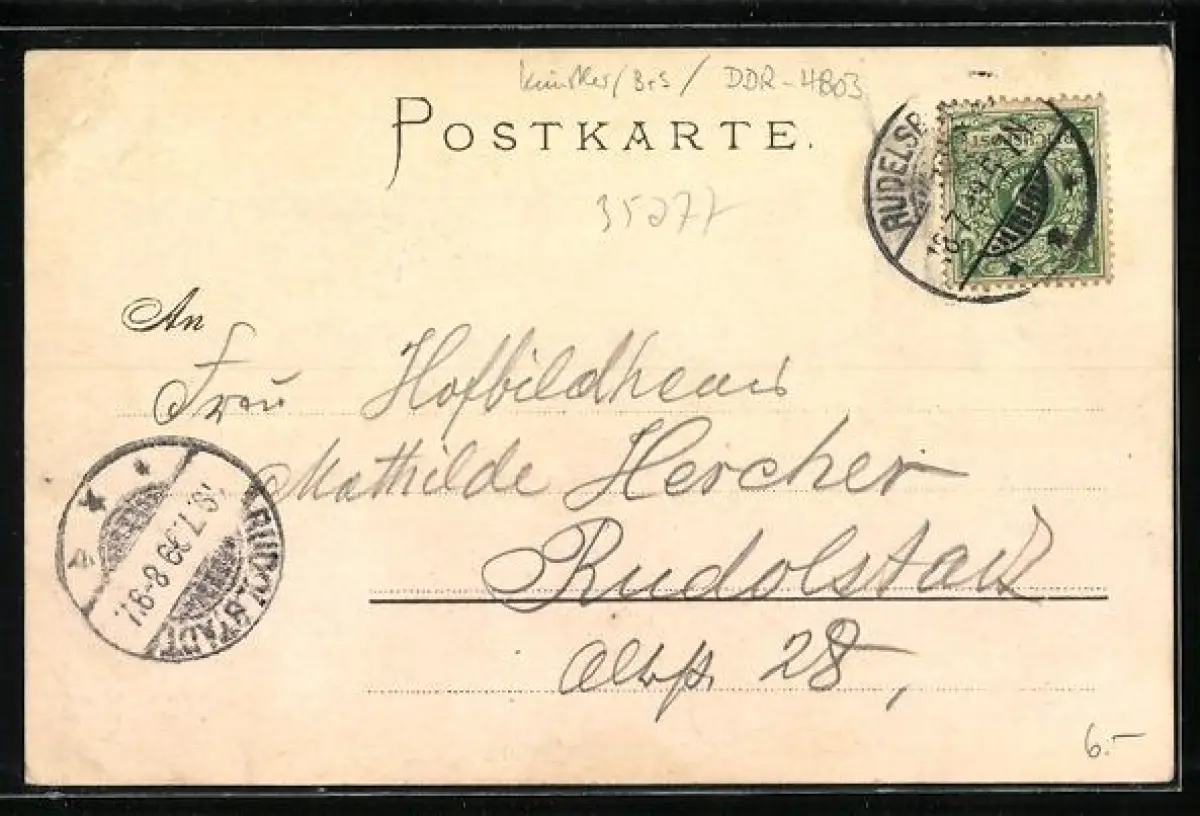 Künstler / B+S / DDR-4803
POSTKARTE.
35277
RUDELSB
18.7.99
An
Frau Hofbildhauer
Mathilde Hercher
Rudolstadt
28,
RUDOLSTADT
18.7.99 8-9 N.
6.-